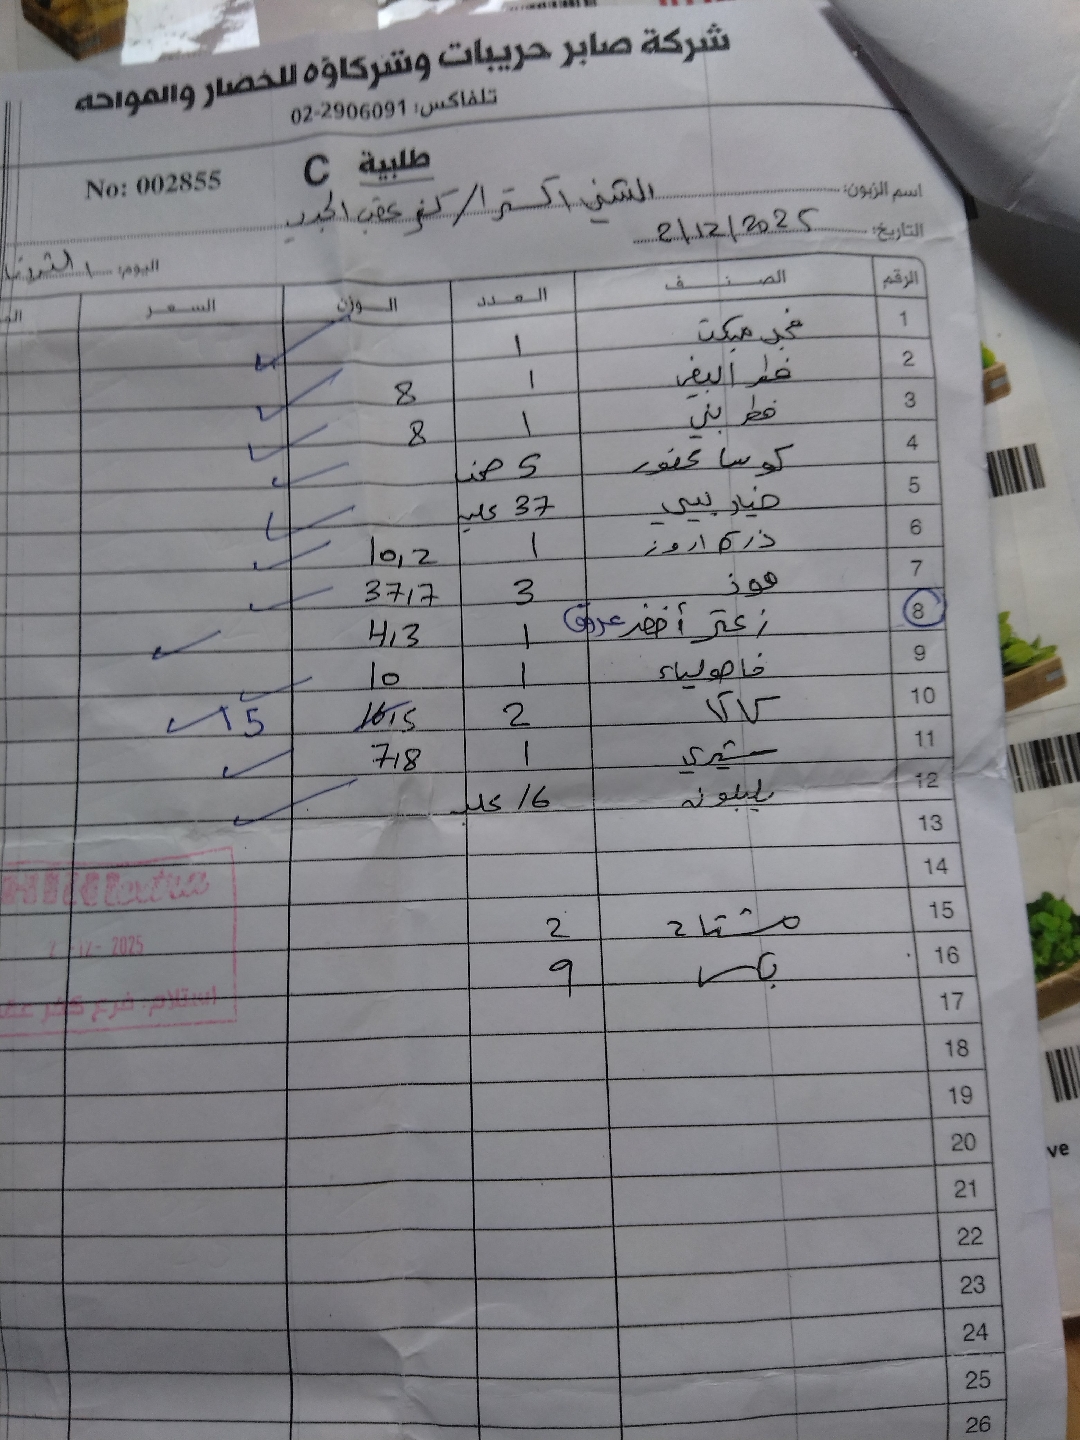 شركة صابر حريبات وشركاؤه للخضار والفواكه
تلفاكس: 02-2906091
طلبية C
No: 002855
اسم الزبون: الشني اكسترا / كفر عقب الجديد
التاريخ: 2/12/2025
اليوم: الثلاثاء
الرقم الصنف العدد الوزن السعر
1 فجل مبكت 1
2 فطر أبيض 1 8
3 فطر بني 1 8
4 كوسا محفور 5 صحن
5 خيار بيبي 37 علبه
6 ذرة اروز 1 10,2
7 موز 3 37,7
8 زعتر أخضر عروق 1 4,3
9 فاصولياء 1 10
10 كاكا 2 16,5 15
11 شيري 1 7,8
12 16 علبه
13
14
15 مشتاح 2
16 بكس 9
17
18
19
20
21
22
23
24
25
26
2-12-2025
استلام: فرع كفر عقب
ve